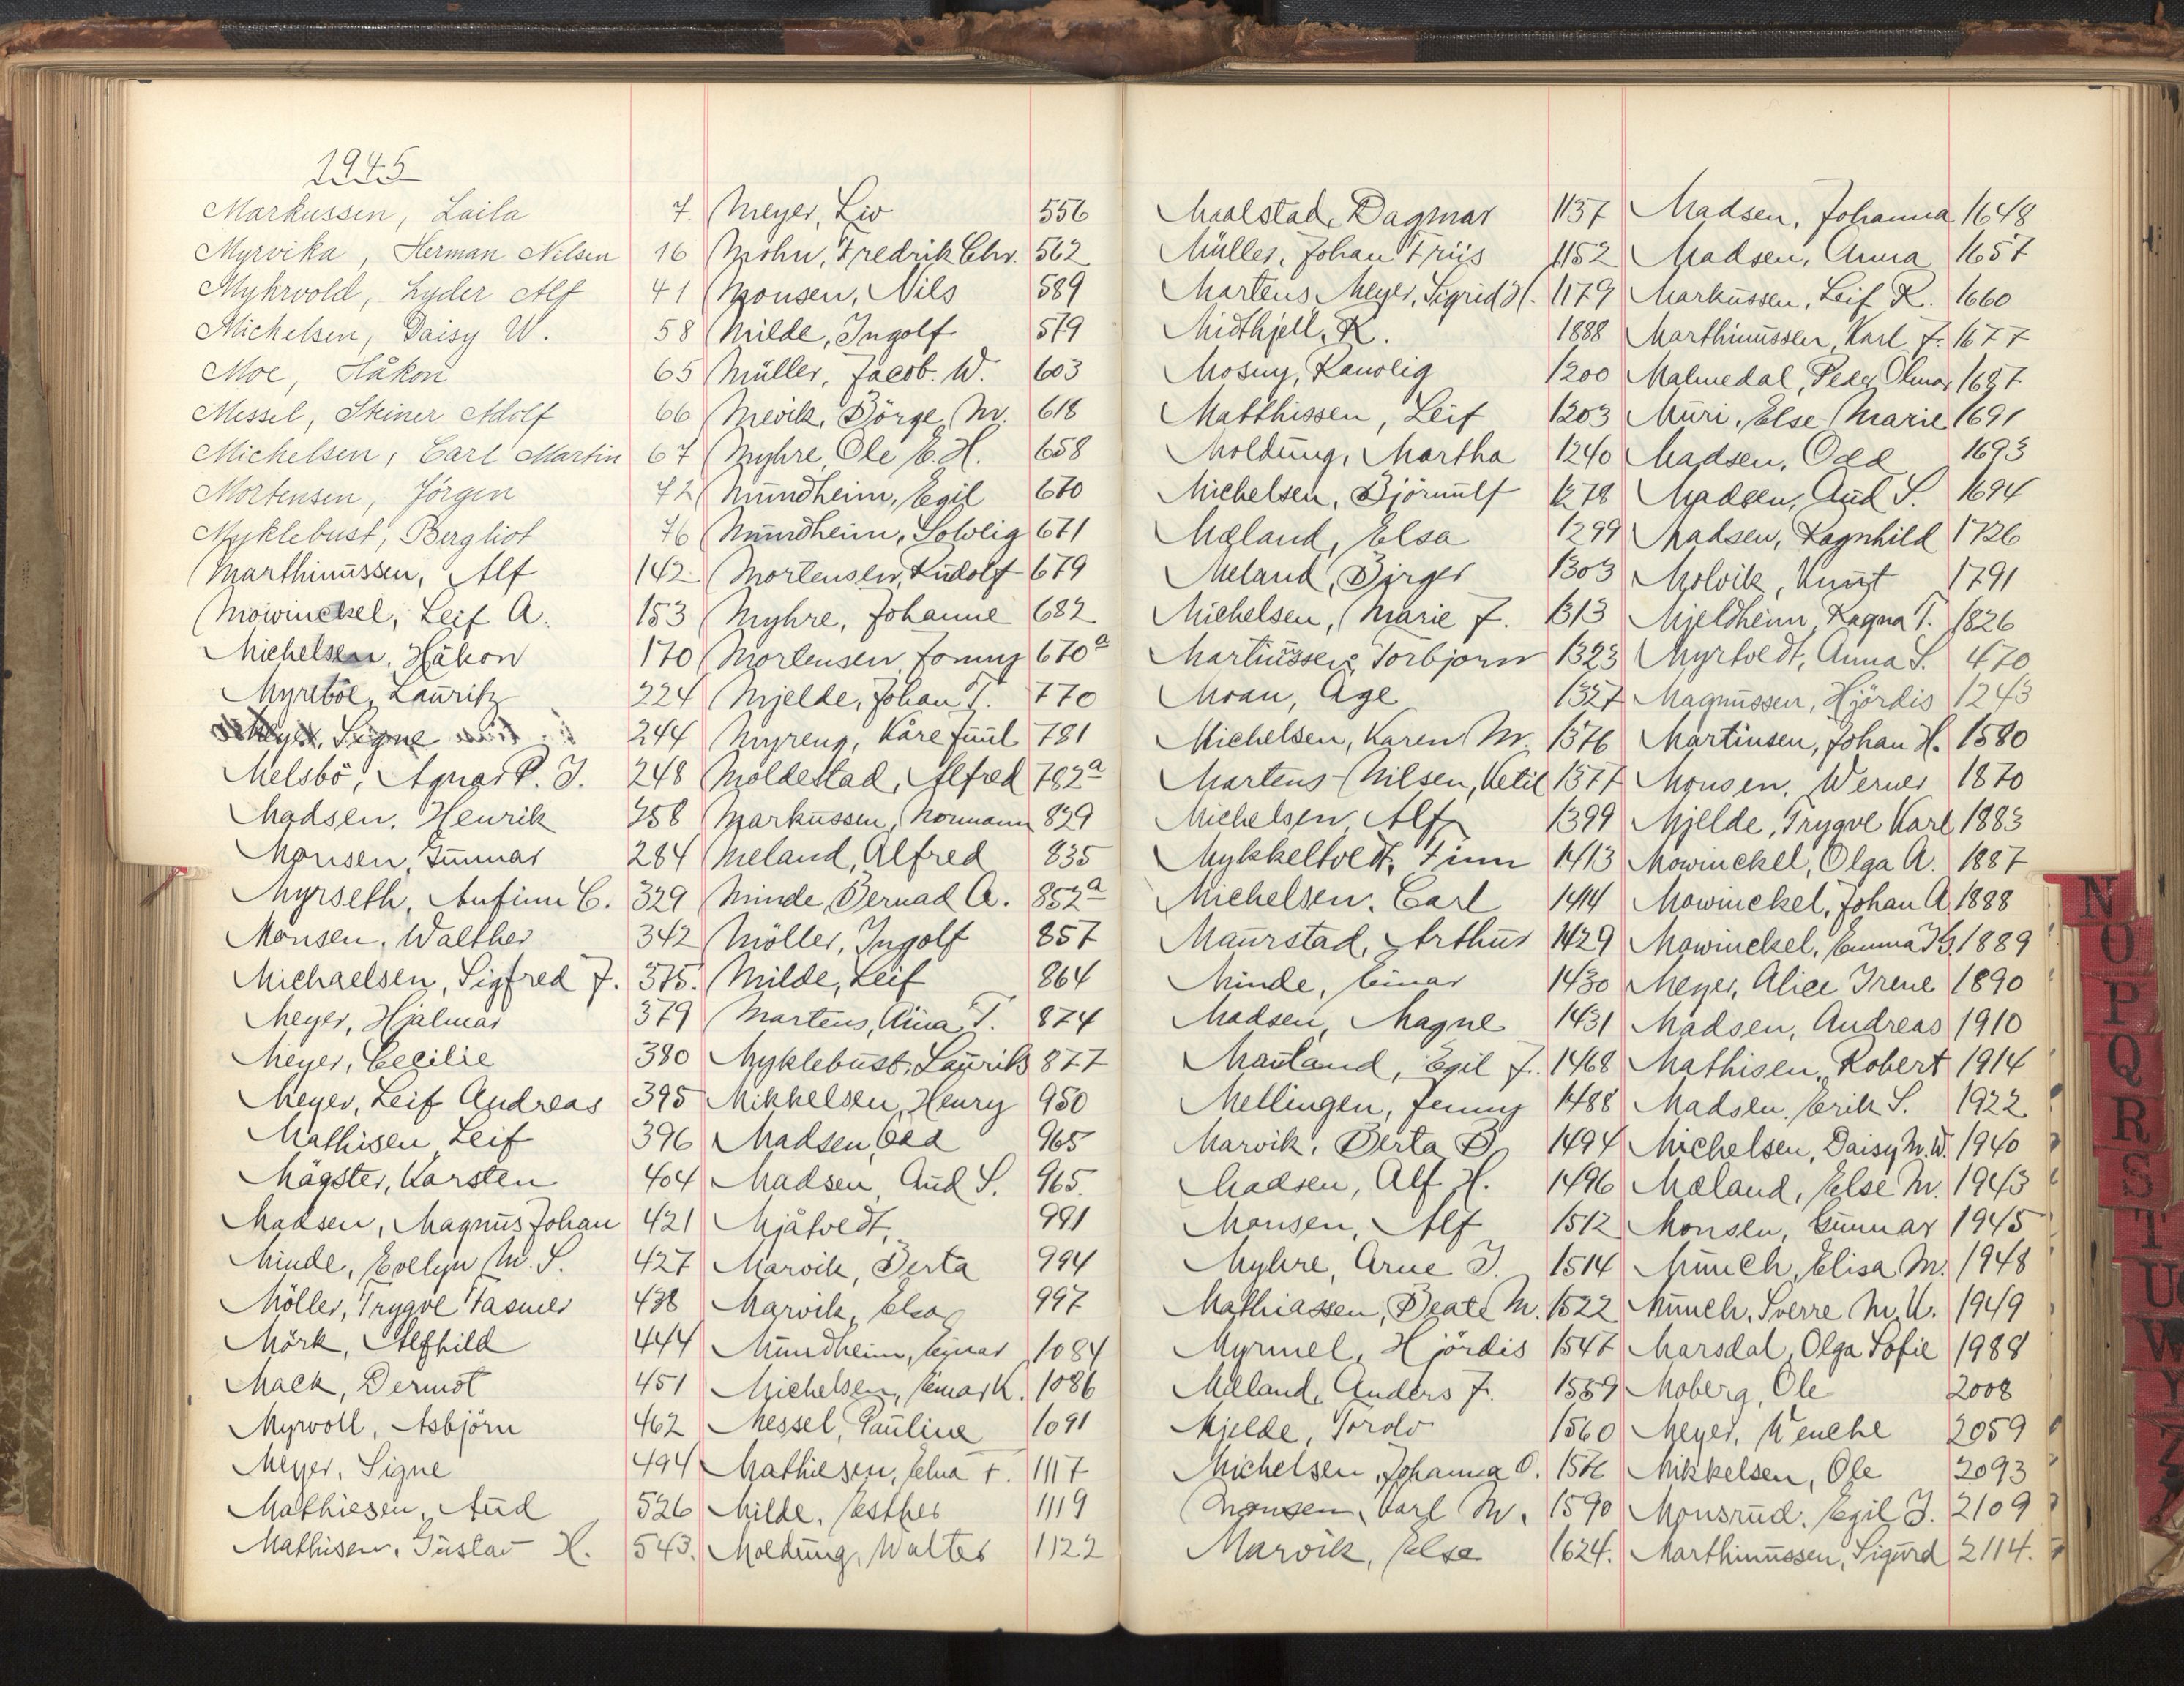 1945
Markussen, Laila 7.
Myrvika, Herman Nilsen 16
Myhrvold, Lyder Alf 41
Michelsen, Daisy W. 58
Moe, Håkon 65
Messel, Steiner Adolf 66
Michelsen, Carl Martin 67
Mortensen, Jörgen 72
Myklebust, Bergliot 76
Marthinussen, Alf 142
Mowinckel, Leif A. 153
Michelsen, Håkon 170
Myreböe, Lauritz 224
Meyer, Signe 244
Melsbö, Agnar P. J. 248
Madsen, Henrik 258
Monsen, Gunnar 284
Myrseth, Anfinn C. 329
Monsen, Walther 342
Michaelsen, Sigfred J. 375.
Meyer, Hjalmar 379
Meyer, Cecilie 380
Meyer, Leif Andreas 395
Mathisen, Leif 396
Mägster, Karsten 404
Madsen, Magnus Johan 421
Minde, Evelyn M. S. 427
Möller, Trygve Fasmer 438
Mörk, Alfhild 444
Mack, Dermot 451
Myrvoll, Asbjörn 462
Meyer, Signe 494
Mathiesen, Aud 526
Mathisen, Gustav H. 543.
Meyer, Liv 556
Mohn, Fredrik Chr. 562
Monsen, Nils 589
Milde, Ingolf 579
Müller, Jacob. W. 603
Mevik, Börge M. 618
Myhre, Ole E. H. 658
Mundheim, Egil 670
Mundheim, Solveig 671
Mortensen, Rudolf 679
Myhre, Johanne 682
Mortensen, Jonny 670a
Mjelde, Johan T. 770
Myreng, Kåre Juul 781
Moldestad, Alfred 782a
Markussen, Normann 829
Meland, Alfred 835
Minde, Bernad A. 852a
Möller, Ingolf 857
Milde, Leif 864
Martens, T. 874
Myklebust, Laurits 877
Mikkelsen, Henry 950
Madsen, Odd 965
Madsen, Aud S. 965.
Mjåtvedt, 991
Marvik, Berta 994
Marvik, Elsa 997
Mundheim, Einar 1084
Michelsen, Einar K. 1086
Messel, Pauline 1091
Mathiesen, Elna F. 1117
Milde, Esther 1119
Moldung, Walter 1122
Maalstad, Dagmar 1137
Müller, Johan Friis 1152
Martens Meyer, Sigrid H. 1179
Midthjell, K. 1888
Mosny, Ranveig 1200
Matthissen, Leif 1203
Moldung, Martha 1240
Michelsen, Björnulf 1278
Mæland, Elsa 1299
Meland, Birger 1303
Michelsen, Marie J. 1313
Martinssen, Torbjorn 1323
Moan, Åge 1327
Michelsen, Karen M. 1376
Martens-Nilsen, Ketil 1377
Michelsen, Alf 1399
Mykkeltvedt, Finn 1413
Michelsen, Carl 1414
Maurstad, Arthur 1429
Minde, Einar 1430
Madsen, Magne 1431
Mauland, Egil J. 1468
Mellingen, Jenny 1488
Marvik, Berta B. 1494
Madsen, Alf H. 1496
Monsen, Alf 1512
Myhre, Arne J. 1514
Mathiassen, Beate M. 1522
Myrmel, Hjördis 1547
Mæland, Anders J. 1559
Mjelde, Torolv 1560
Michelsen, Johanna O. 1576
Monsen, Karl M. 1590
Marvik, Else 1624.
Madsen, Johanna 1648
Madsen, Anna 1657
Markussen, Leif R. 1660
Marthinussen, Karl J. 1677
Malmedal, Peder Olmar 1687
Muri, Else Marie 1691
Madsen, Odd 1693
Madsen, Aud S. 1694
Madsen, Ragnhild 1726
Molvik, Knut 1791
Mjeldheim, Ragna T. 1826
Myrtvedt, Anna S. 470
Magnussen, Hjördis 1243
Martinsen, Johan H. 1580
Monsen, Werner 1870
Mjelde, Trygve Karl 1883
Mowinckel, Olga A. 1887
Mowinckel, Johan A. 1888
Mowinckel, Emma 1889
Meyer, Alice Irene 1890
Madsen, Andreas 1910
Mathisen, Robert 1914
Madsen, Erik S. 1922
Michelsen, Daisy M. W. 1940
Mæland, Else M. 1943
Monsen, Gunnar 1945
Münch, Elisa M. 1948
Münch, Sverre M. U. 1949
Marsdal, Olga Sofie 1988
Moberg, Ole 2008
Meyer, Wenche 2059
Mikkelsen, Ole 2093
Monsrud, Egil J. 2109
Marthinussen, Sigurd 2114.
N
O
P
Q
R
S
T
U
W
Y
Z